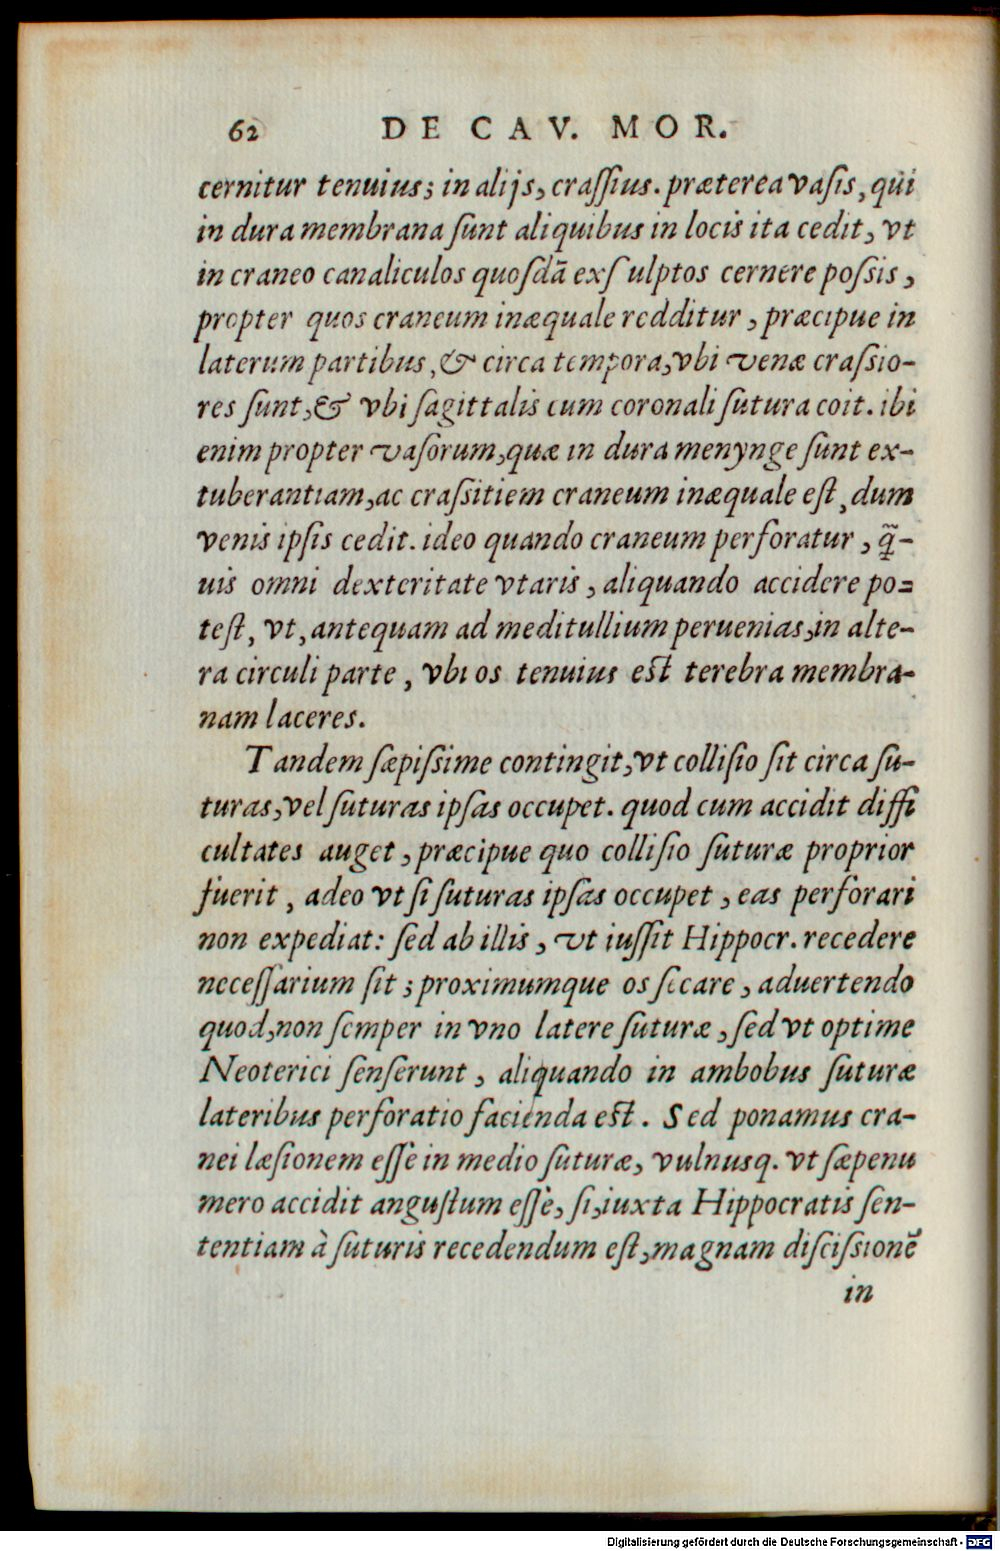 62 DE CAV. MOR.
cernitur tenuius; in alijs, craſſius. præterea vaſis, qui
in dura membrana ſunt aliquibus in locis ita cedit, vt
in craneo canaliculos quoſdã exſulptos cernere poſsis,
propter quos craneum inæquale redditur, præcipue in
laterum partibus, & circa tempora, vbi venæ craſsio-
res ſunt, & vbi ſagittalis cum coronali ſutura coit. ibi
enim propter vaſorum, quæ in dura menynge ſunt ex-
tuberantiam, ac craſsitiem craneum inæquale eſt, dum
venis ipſis cedit. ideo quando craneum perforatur, q̃-
uis omni dexteritate vtaris, aliquando accidere po=
teſt, vt, antequam ad meditullium peruenias, in alte-
ra circuli parte, vbi os tenuius eſt terebra membra-
nam laceres.
Tandem ſæpiſsime contingit, vt colliſio ſit circa ſu-
turas, vel ſuturas ipſas occupet. quod cum accidit diffi
cultates auget, præcipue quo colliſio ſuturæ proprior
fuerit, adeo vt ſi ſuturas ipſas occupet, eas perforari
non expediat: ſed ab illis, vt iuſſit Hippocr. recedere
neceſſarium ſit; proximumque os ſecare, aduertendo
quod, non ſemper in vno latere ſuturæ, ſed vt optime
Neoterici ſenſerunt, aliquando in ambobus ſuturæ
lateribus perforatio facienda eſt. Sed ponamus cra-
nei læſionem eſſe in medio ſuturæ, vulnusq. vt ſæpenu
mero accidit anguſtum eſſe, ſi, iuxta Hippocratis ſen-
tentiam à ſuturis recedendum eſt, magnam diſciſsionẽ
in
Digitalisierung gefördert durch die Deutsche Forschungsgemeinschaft - DFG